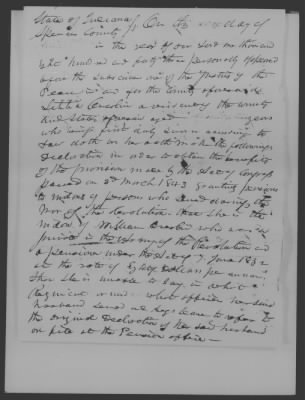 State of Indiana
Spencer County } On this day of
in the year of our Lord one thousand
Eight hundred and forty three personally appeared
before the subscriber one of the Justices of the
Peace in and for the County aforesaid
a resident of the County
and State aforesaid aged years
who being first duly sworn according to
law doth on her oath make the following
Declaration in order to obtain the benefits
of the provision made by the Act of Congress
passed on 3rd March 1843 granting pensions
to widows of persons who served during the
War of the Revolution that she is the
widow of William who was a
private in the army of the Revolution and
a pensioner under the Act of 7 June 1832
at the rate of Eighty dollars per annum
that she is unable to say in what
Regiment or under what officer her said
husband served and begs leave to refer to
the original Declaration of her said husband
on file at the Pension office